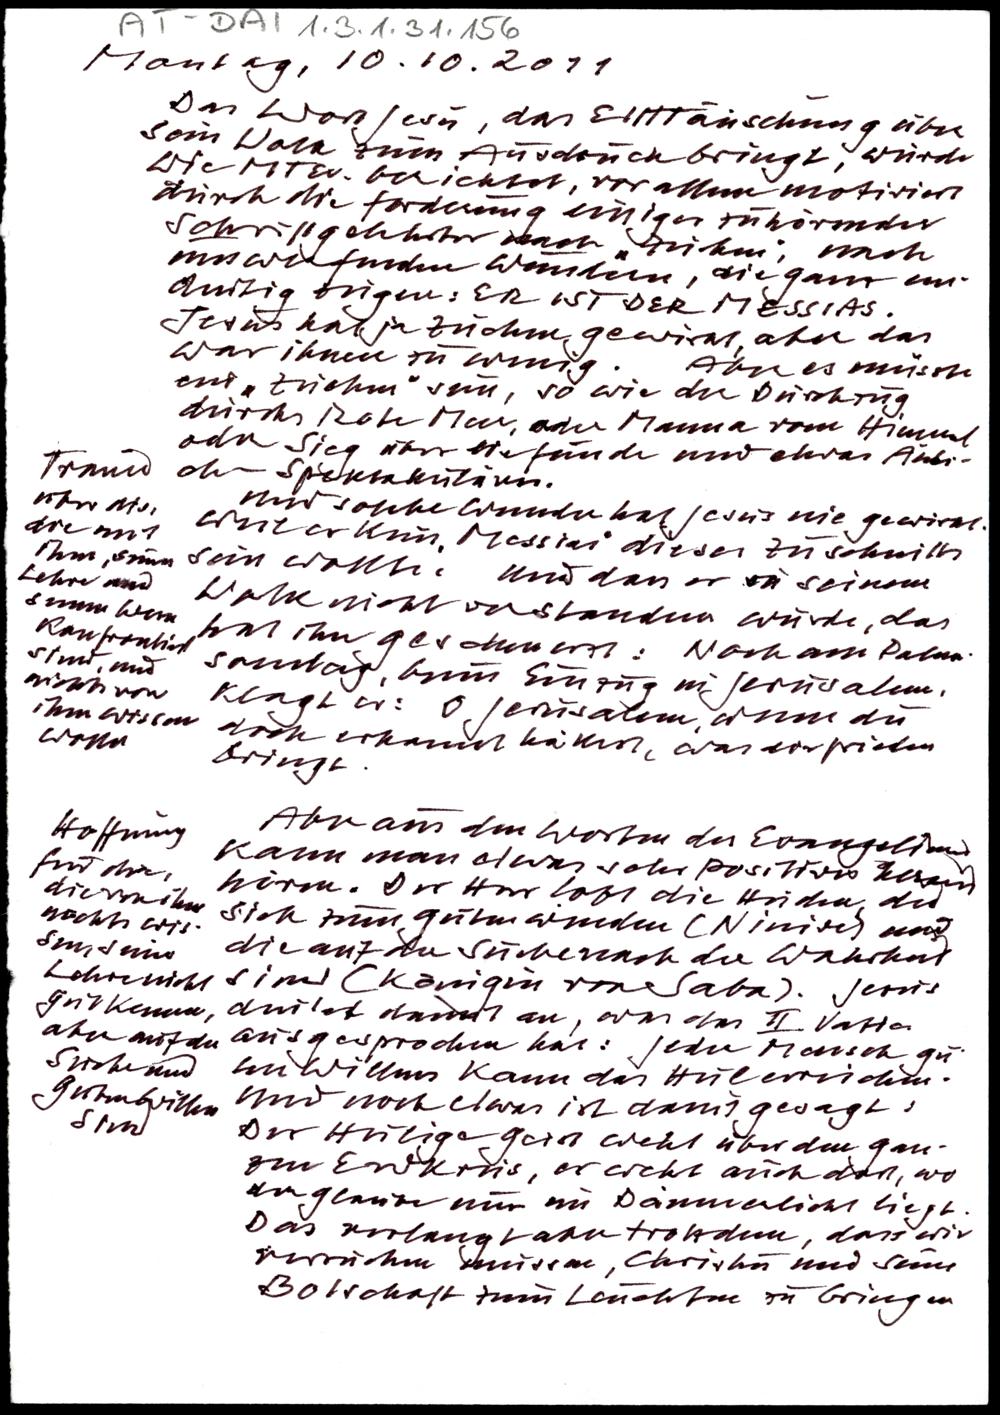 AT-DAI 1.3.1.31.156
Montag, 10.10.2011
Das Wort Jesu, das Enttäuschung über
sein Volk zum Ausdruck bringt, wurde
wie Mt Ev. berichtet, vor allem motiviert
durch die Forderung einiger zuhörender
Schriftgelehrter nach "Zeichen", nach
umwerfenden Wundern, die ganz ein-
deutig zeigen: ER IST DER MESSIAS.
Jesus hat ja Zeichen gewirkt, aber das
war ihnen zu wenig. Aber es müsste
ein "Zeichen" sein, so wie der Durchzug
durchs Rote Meer, oder Manna vom Himmel
oder Sieg über die Feinde und etwas
Spektakuläres.
Und solche Wunder hat Jesus nie gewirkt.
weil er kein "Messias" dieses Zuschnitts
sein wollte. Und dass er in seinem
Volk nicht verstanden wurde, das
hat ihn geschmerzt: Noch am Palm-
sonntag, beim Einzug in Jerusalem,
klagt er: O Jerusalem, wenn du
doch erkannt hättest, was dir Frieden
bringt.
Trauer
über die,
die mit
ihm, seiner
Lehre und
seinem Werk
konfrontiert
sind, und
nichts von
ihm wissen
wollen
Aber aus den Worten des Evangeliums
kann man etwas sehr Positives heraus
hören. Der Herr lobt die Heiden, die
sich zum guten wenden (Ninive) und
die auf der Suche nach der Wahrheit
sind (Königin von Saba). Jesus
deutet damit an, was das II. Vatic
ausgesprochen hat: Jeder Mensch gu-
ten Willens kann das Heil erreichen.
Und noch etwas ist damit gesagt:
Der Heilige Geist weht über den gan-
zen Erdkreis, er weht auch dort, wo
der Glaube nur im Dämmerlicht liegt.
Das verlangt aber trotzdem, dass wir
versuchen müssen, Christus und seine
Botschaft zum Leuchten zu bringen
Hoffnung
für die,
die von ihm
nichts wis-
sen, seine
Lehre nicht
gut kennen,
aber auf der
Suche und
guten Willens
sind